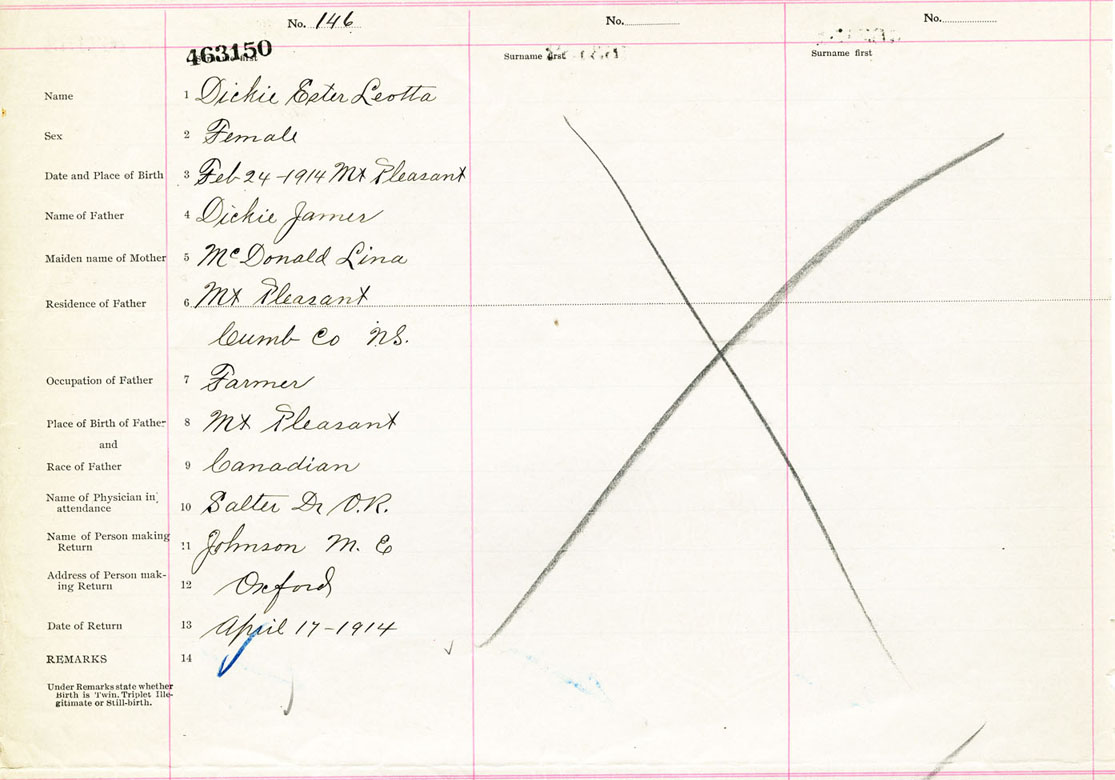 No. 146
No.
No.
463150
Surname first
Surname first
Name 1 Dickie Ester Leotta
Sex 2 Female
Date and Place of Birth 3 Feb 24-1914 Mt Pleasant
Name of Father 4 Dickie James
Maiden name of Mother 5 McDonald Lina
Residence of Father 6 Mt Pleasant
Cumb Co NS.
Occupation of Father 7 Farmer
Place of Birth of Father 8 Mt Pleasant
and
Race of Father 9 Canadian
Name of Physician in
attendance 10 Salter Dr O.R.
Name of Person making
Return 11 Johnson M. E
Address of Person mak-
ing Return 12 Oxford
Date of Return 13 April 17-1914
REMARKS 14
Under Remarks state whether
Birth is Twin, Triplet Ille-
gitimate or Still-birth.